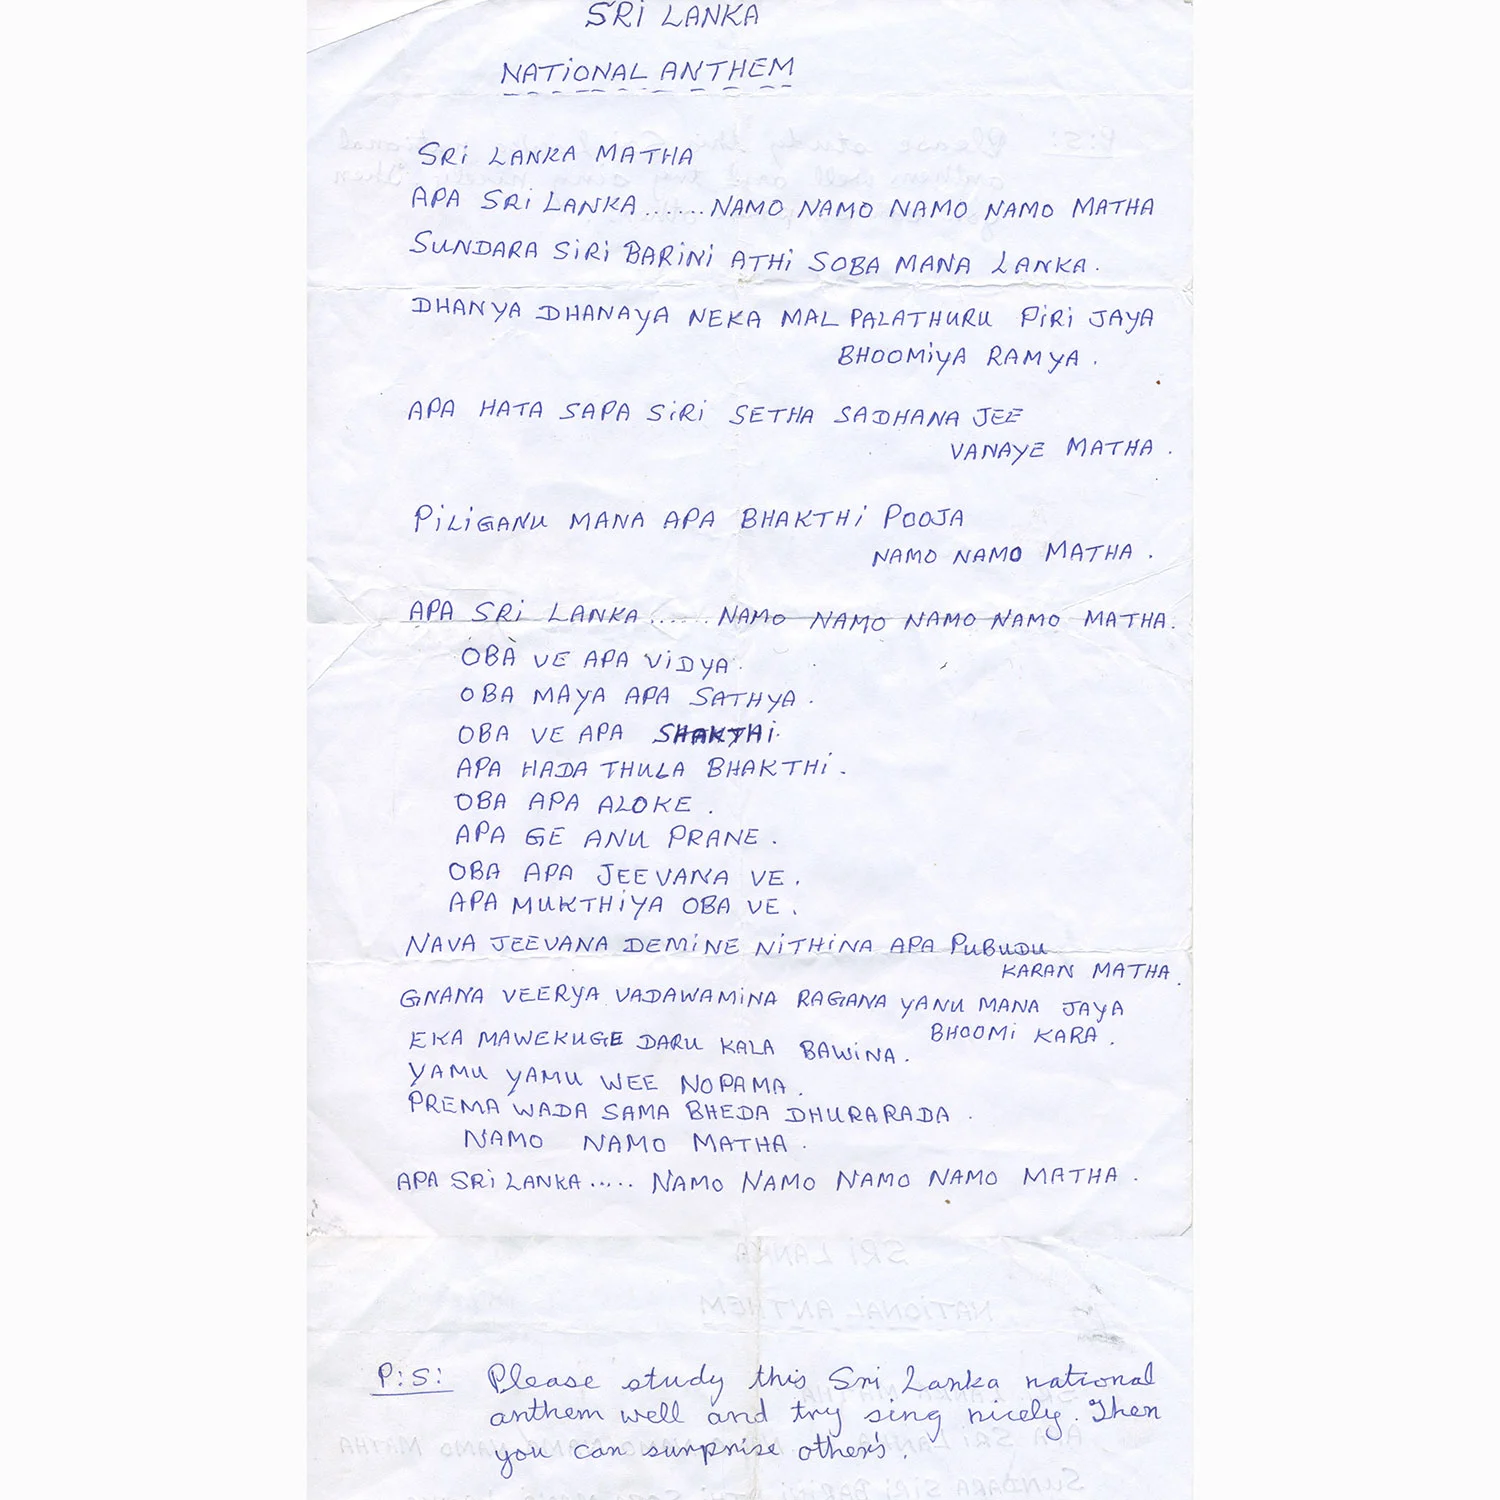 SRi LANKA
NATiONAL ANTHEM
SRi LANKA MATHA
APA SRi LANKA......NAMO NAMO NAMO NAMO MATHA
SUNDARA SiRi BARiNi ATHi SOBA MANA LANKA.
DHANYA DHANAYA NEKA MAL PALATHURU PiRi JAYA
BHOOMiYA RAMYA.
APA HATA SAPA SiRi SETHA SADHANA JEE
VANAYE MATHA.
PiLiGANU MANA APA BHAKTHi POOJA
NAMO NAMO MATHA.
APA SRi LANKA...... NAMO NAMO NAMO NAMO MATHA.
OBA VE APA ViDYA.
OBA MAYA APA SATHYA.
OBA VE APA SHAKTHi.
APA HADA THULA BHAKTHi.
OBA APA ALOKE.
APA GE ANU PRANE.
OBA APA JEEVANA VE.
APA MUKTHiYA OBA VE.
NAVA JEEVANA DEMiNE NiTHiNA APA PUBUDU
KARAN MATHA.
GNANA VEERYA VADAWAMiNA RAGANA YANU MANA JAYA
BHOOMi KARA.
EKA MAWEKUGE DARU KALA BAWiNA.
YAMU YAMU WEE NOPAMA.
PREMA WADA SAMA BHEDA DHURARADA.
NAMO NAMO MATHA.
APA SRi LANKA..... NAMO NAMO NAMO NAMO MATHA.
P:S: Please study this Sri Lanka national
anthem well and try sing nicely. Then
you can surprise other's.